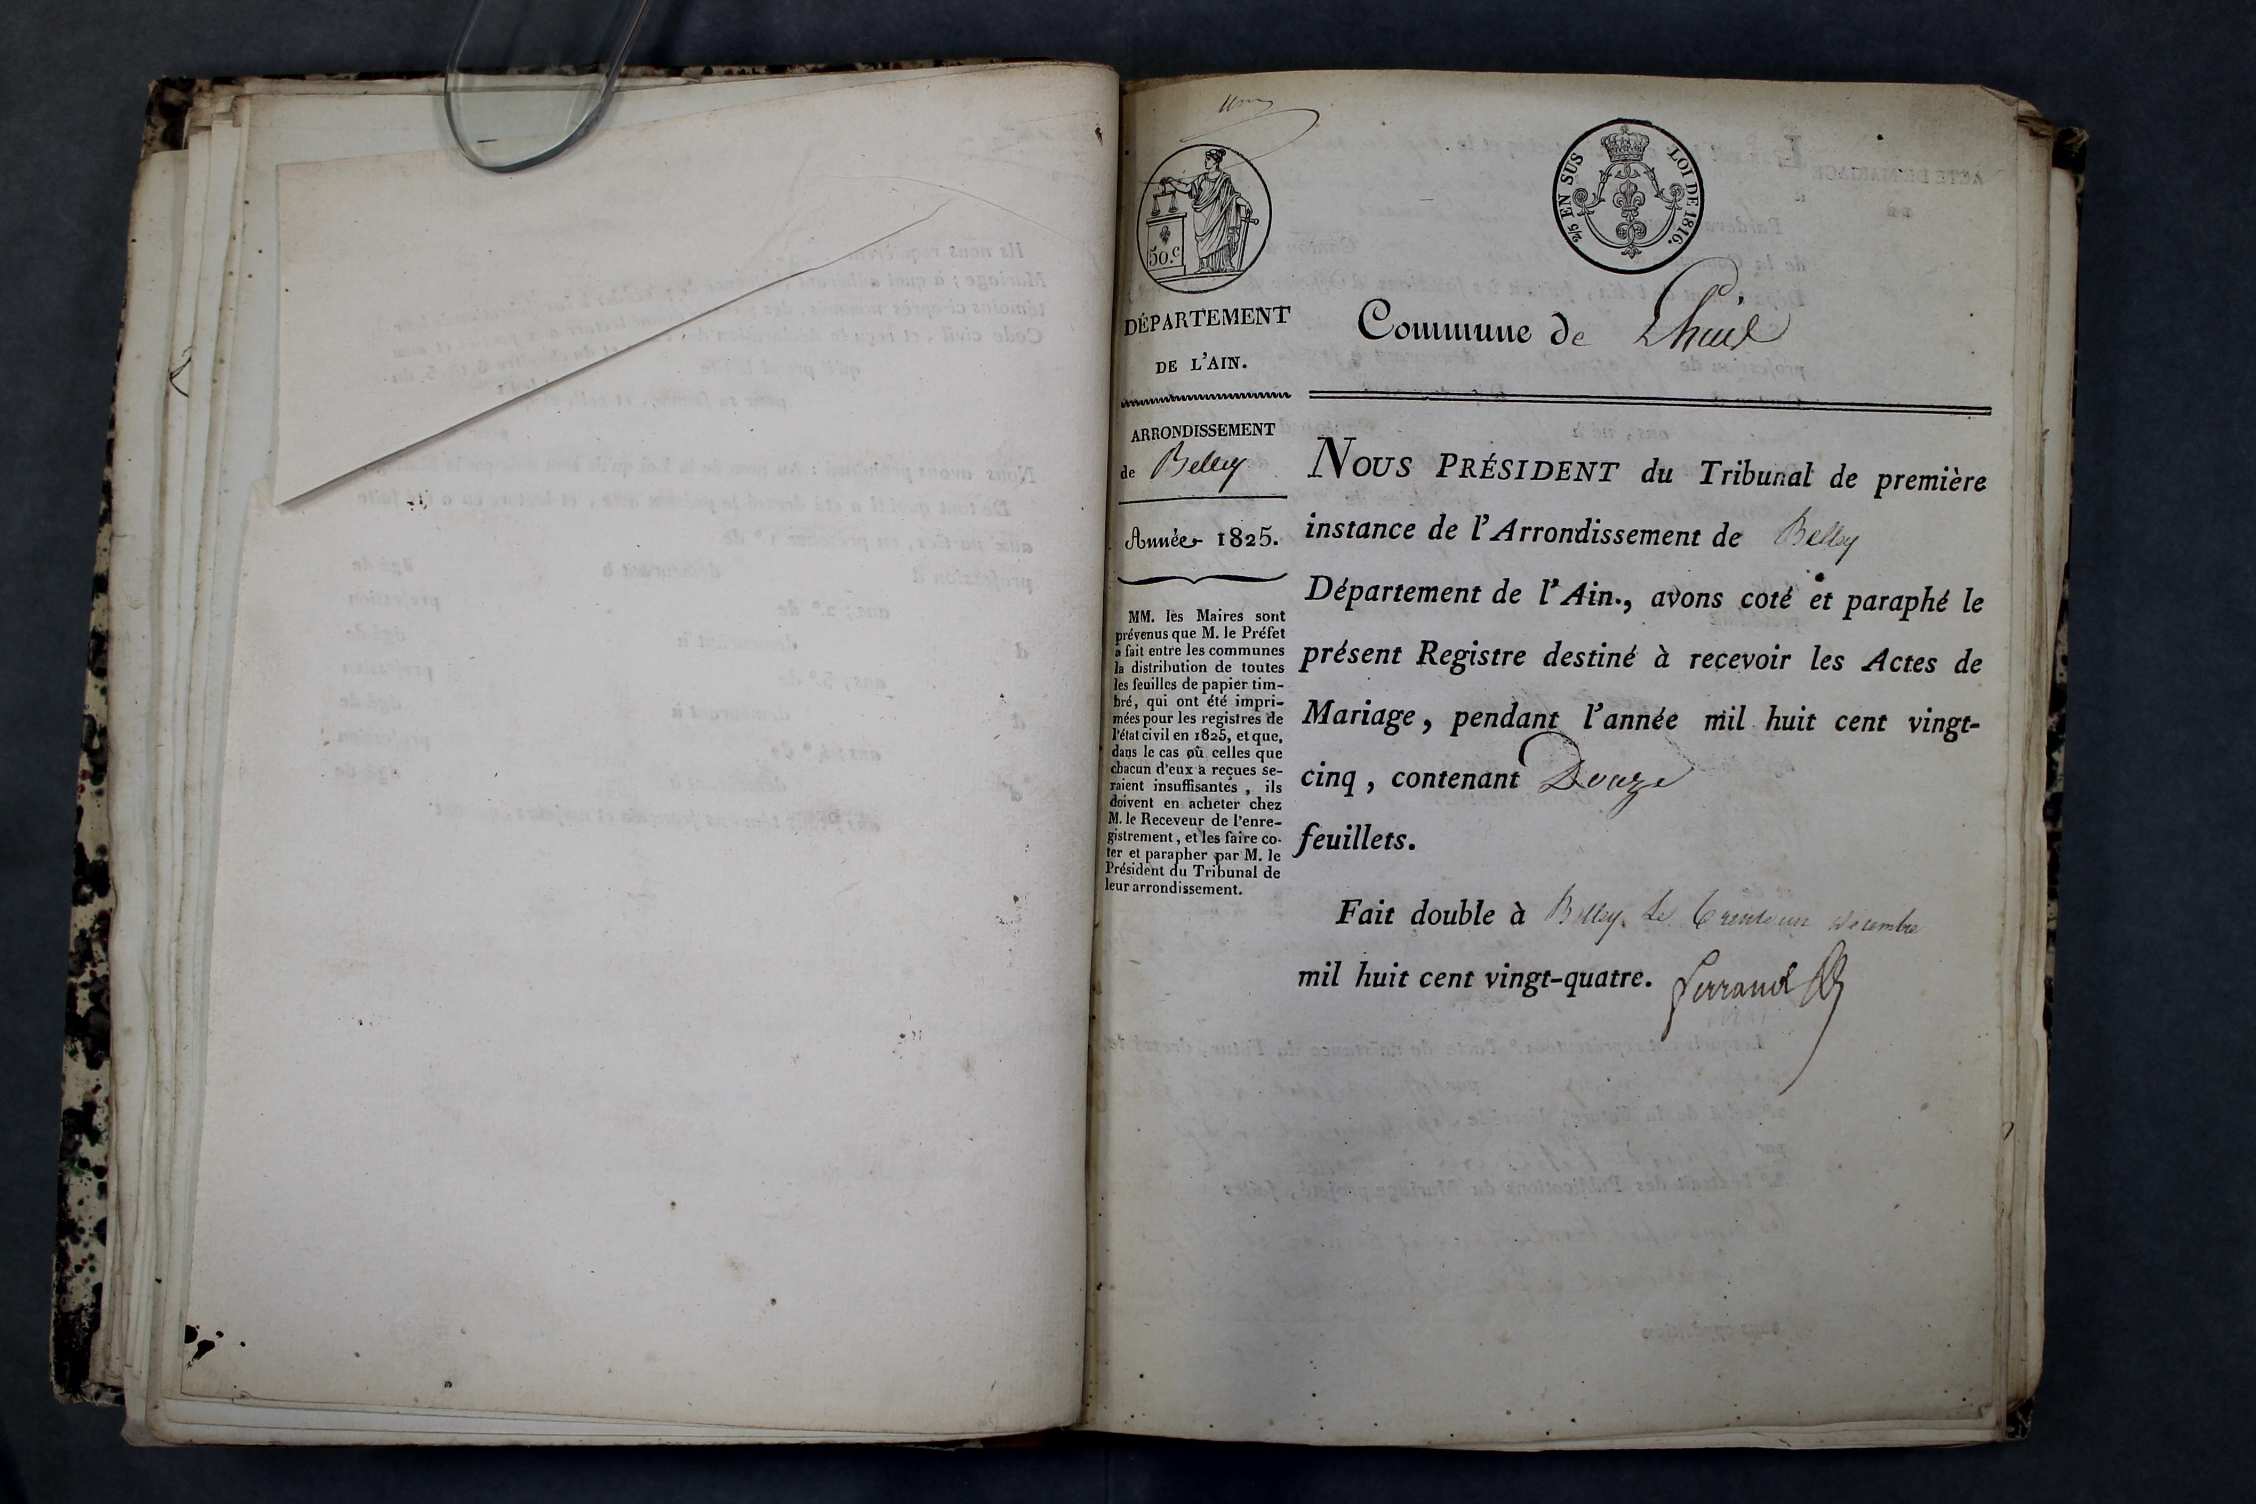 un
50.c
2/5 EN SUS LOI DE 1816.
DÉPARTEMENT
DE L'AIN.
Commune de Lhuis
ARRONDISSEMENT
de Belley
Année 1825.
MM. les Maires sont
prévenus que M. le Préfet
a fait entre les communes
la distribution de toutes
les feuilles de papier tim-
bré, qui ont été impri-
mées pour les registres de
l'état civil en 1825, et que,
dans le cas où celles que
chacun d'eux a reçues se-
raient insuffisantes, ils
doivent en acheter chez
M. le Receveur de l'enre-
gistrement, et les faire co-
ter et parapher par M. le
Président du Tribunal de
leur arrondissement.
NOUS PRÉSIDENT du Tribunal de première
instance de l'Arrondissement de Belley
Département de l'Ain., avons coté et paraphé le
présent Registre destiné à recevoir les Actes de
Mariage, pendant l'année mil huit cent vingt-
cinq, contenant Douze
feuillets.
Fait double à Belley Le trente un décembre
mil huit cent vingt-quatre. Ferrand